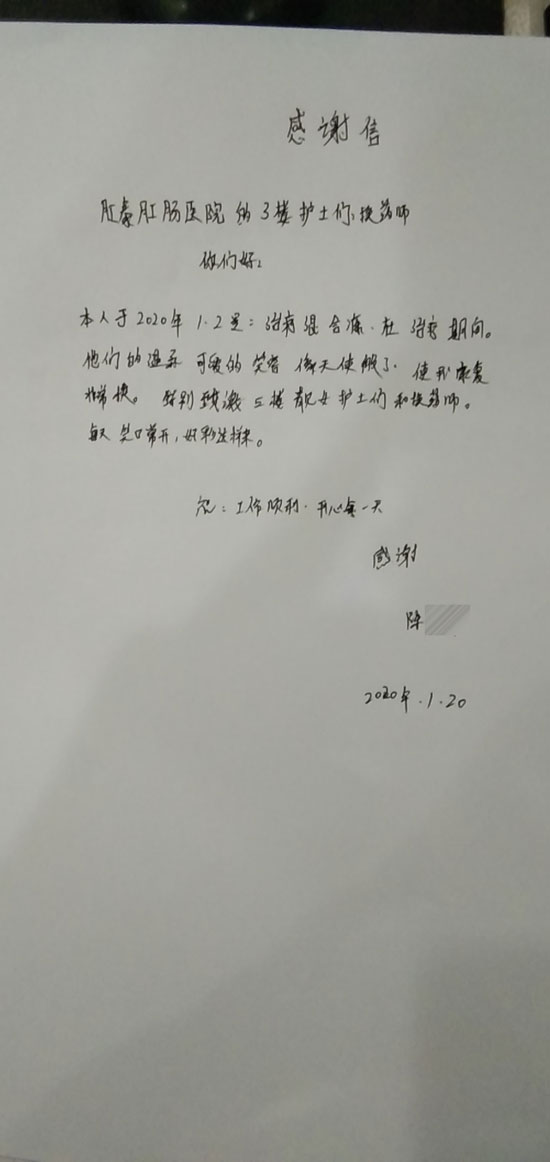 感谢信
肛泰肛肠医院的3楼护士们、换药师
你们好:
本人于2020年1.2号:治疗混合痔.在治疗期间。
他们的温柔 可爱的笑容 像天使般了 使我康复
非常快。特别致激三楼靓女护士们和换药师。
每天笑口常开,好彩这样来。
祝:工作顺利.开心每一天
感谢
陈
2020年.1.20